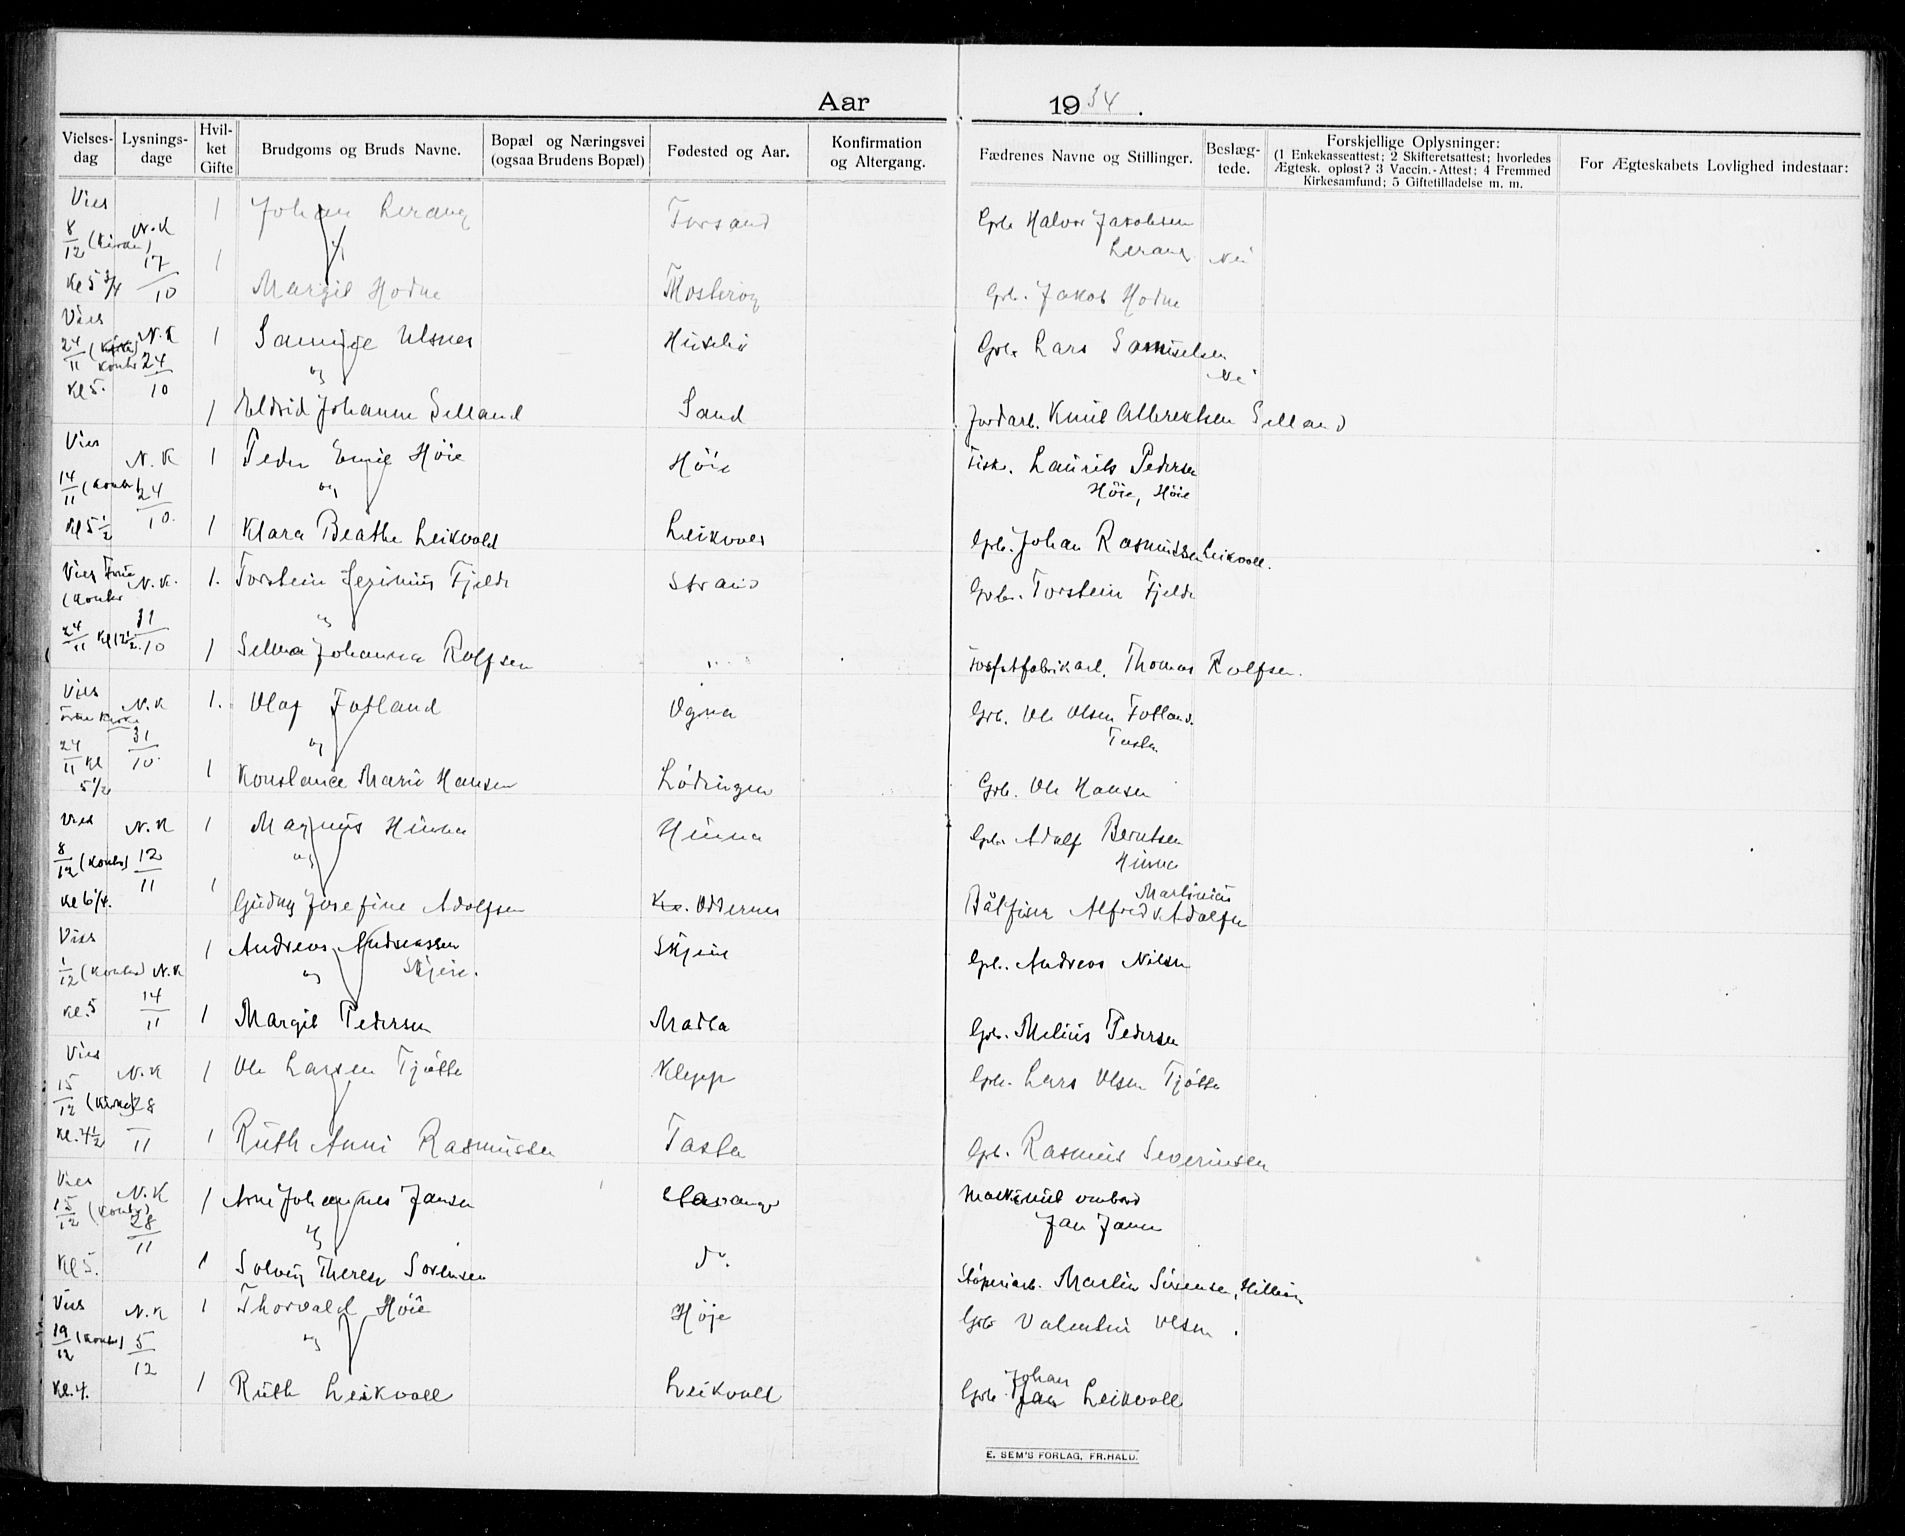 Aar 1934.
Vielses-dag
Lysnings-dage
Hvil-ket Gifte
Brudgoms og Bruds Navne.
Bopæl og Næringsvei (ogsaa Brudens Bopæl)
Fødested og Aar.
Konfirmation og Altergang.
Fædrenes Navne og Stillinger.
Beslæg-tede.
Forskjellige Oplysninger:
(1 Enkekasseattest; 2 Skifteretsattest; hvorledes
Ægtesk. opløst? 3 Vaccin.-Attest; 4 Fremmed
Kirkesamfund; 5 Giftetilladelse m. m.
For Ægteskabets Lovlighed indestaar:
Vies N.K 1 Johan Lerang Forsand Gbr. Halvor Jakobsen
8/12 17/10 Lerang Nei
Kl 5 3/4 1 Margit Hodne Mosterøy Gbr. Jakob Hodne
Vies N.K 1 Ulsnes Gbr. Lars Samuelsen
24/11 Kontr 24/10 og Nei
Kl 5. 1 Eldrid Johanne Selland Sand Jordarb. Knut Albrektsen Selland
Vies N.K 1 Peder Emil Höie Höie Fisk. Laurits Pedersen
14/11 (Kontr) 24/10. og Höie, Höie
Kl 5 1/2 1 Klara Beathe Leikvold Leikvoll Gbr. Johan Rasmussen Leikvoll.
Vies N.K. 1. Torstein Fjelde Strand Gbr. Torstein Fjelde
(Kontr 31/10 og
24/11 Kl 12 1/2. 1 Selma Johanna Rolfsen " Fosfatfabrikarb. Thomas Rolfsen.
Vies N.K 1. Olaf Fotland Ogna Gbr. Ole Olsen Fotland.
Kirke 31/10. og Tasta
24/11 Kl 5 1/2 1 Konstance Marie Hansen Lødingen Gbr. Ole Hansen
Vies N.K 1 Magnus Hinna Hinna Gbr. Adolf Berntsen
8/12 (Kontr) 12/11 og Hinna
Kl 6 1/4. 1 Gudny Josefine Adolfsen Oddernes Alfred Martinius Adolfsen
Vies 1 Andreas Andreassen Skjeie Gbr. Andreas Nilsen
1/12 (Kontr) N.K og Skjeie.
Kl. 5 14/11 1 Margit Pedersen Madla Gbr. Melius Pedersen
Vies N.K 1 Ole Larsen Tjøtta Klepp Gbr. Lars Olsen Tjøtta
15/12 (Kirke) 28/11
Kl. 4 1/2 1 Ruth Anni Rasmussen Tasta Gbr. Rasmus Severinsen
Vies N.K 1 Arne Johannes Jansen Stavanger Maskinist ombord
15/12 (Kontr) 28/11 og Jan Jansen
Kl 5. 1 Solveig Therese Sørensen do. Støperiarb. Martin Sørensen, Hillevåg
Vies N.K 1 Thorvald Höie Høje Gbr Valentin Olsen.
19/12 (Kontr) 5/12 og
Kl. 4. 1 Ruth Leikvoll Leikvoll Gbr. Johan Leikvoll
E. SEM'S FORLAG, FR.HALD.